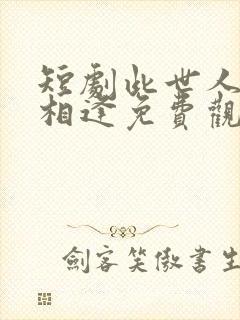 短劇此世人
相逢免費觀
劍客笑傲書生